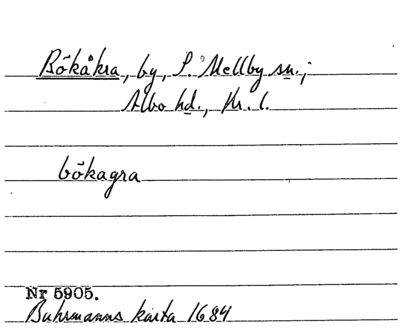 Bökåkra, by, S. Mellby sn.;
Albo hd., Kr. l.
bökagra
Nr 5905.
Buhrmanns karta 1684